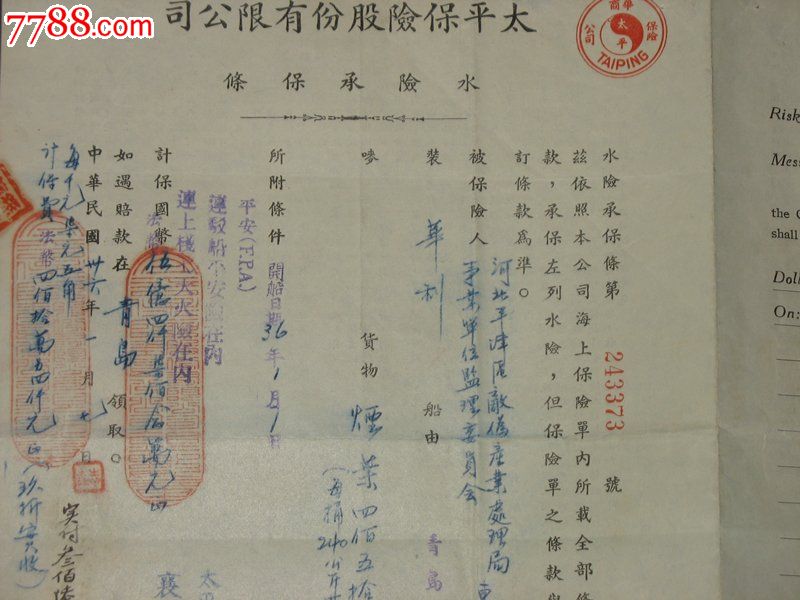 7788.com
太平保險股份有限公司
華商
太平
保險
公司
TAIPING
水險承保條
水險承保條第 243373 號
茲依照本公司海上保險單內所載全部條
款，承保左列水險，但保險單之條款與
訂條款為準。
被保險人 河北平津區敵偽產業處理局
事業單位監理委員會
裝 華利 船由 青島
嘜 貨物 煙葉 四佰五拾
(每捅240公斤
所附條件 開船日期36年1月1日
平安(F.P.A.)
連駁船平安險在內
連上棧 火險在內
計保國幣 法幣 伍億四仟柒佰 萬元正
如遇賠款在 青島 領取。
中華民國卅六年一月七日
每千元柒元五角
計保費法幣四佰拾萬 四仟元正(玖折實收)
實付叁佰陸
太
襄
Risk
Mess
the C
shall
Doll
On: